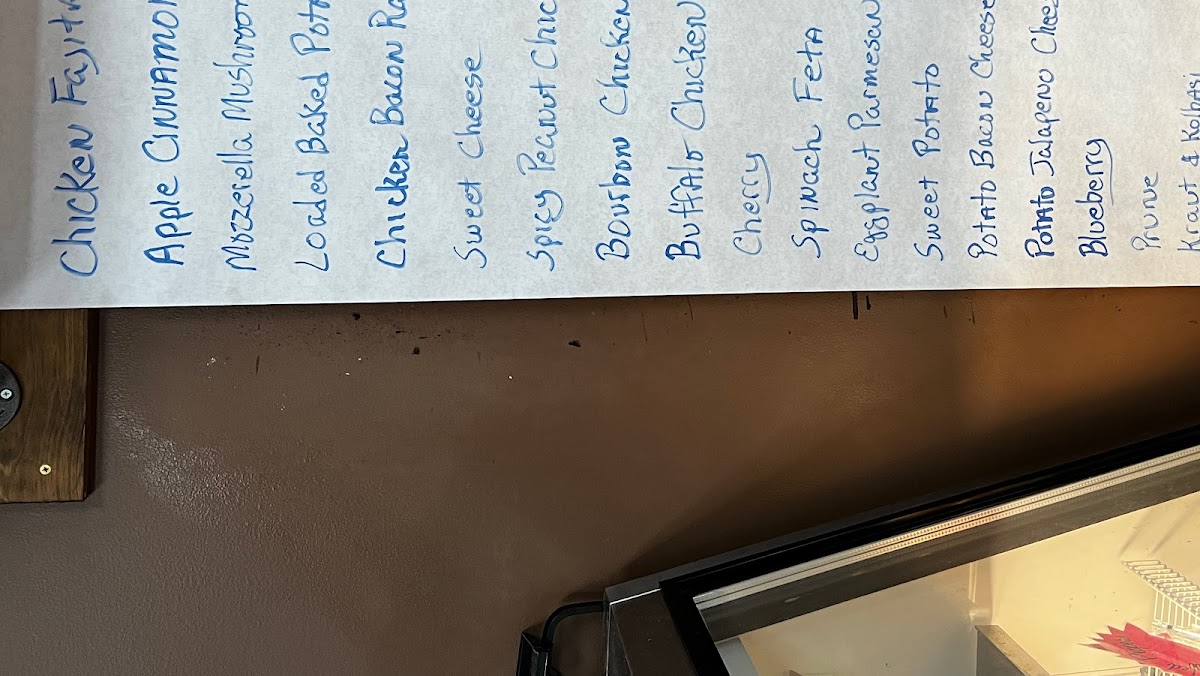 Chicken Fajit
Apple Cinnamon
Mozzerella Mushroom
Loaded Baked Pot
Chicken Bacon Ra
Sweet Cheese
Spicy Peanut Chic
Bourbon Chicken
Buffalo Chicken
Cherry
Spinach Feta
Eggplant Parmesan
Sweet Potato
Potato Bacon Cheese
Potato Jalapeno Chee
Blueberry
Prune
Kraut & Kolbasi